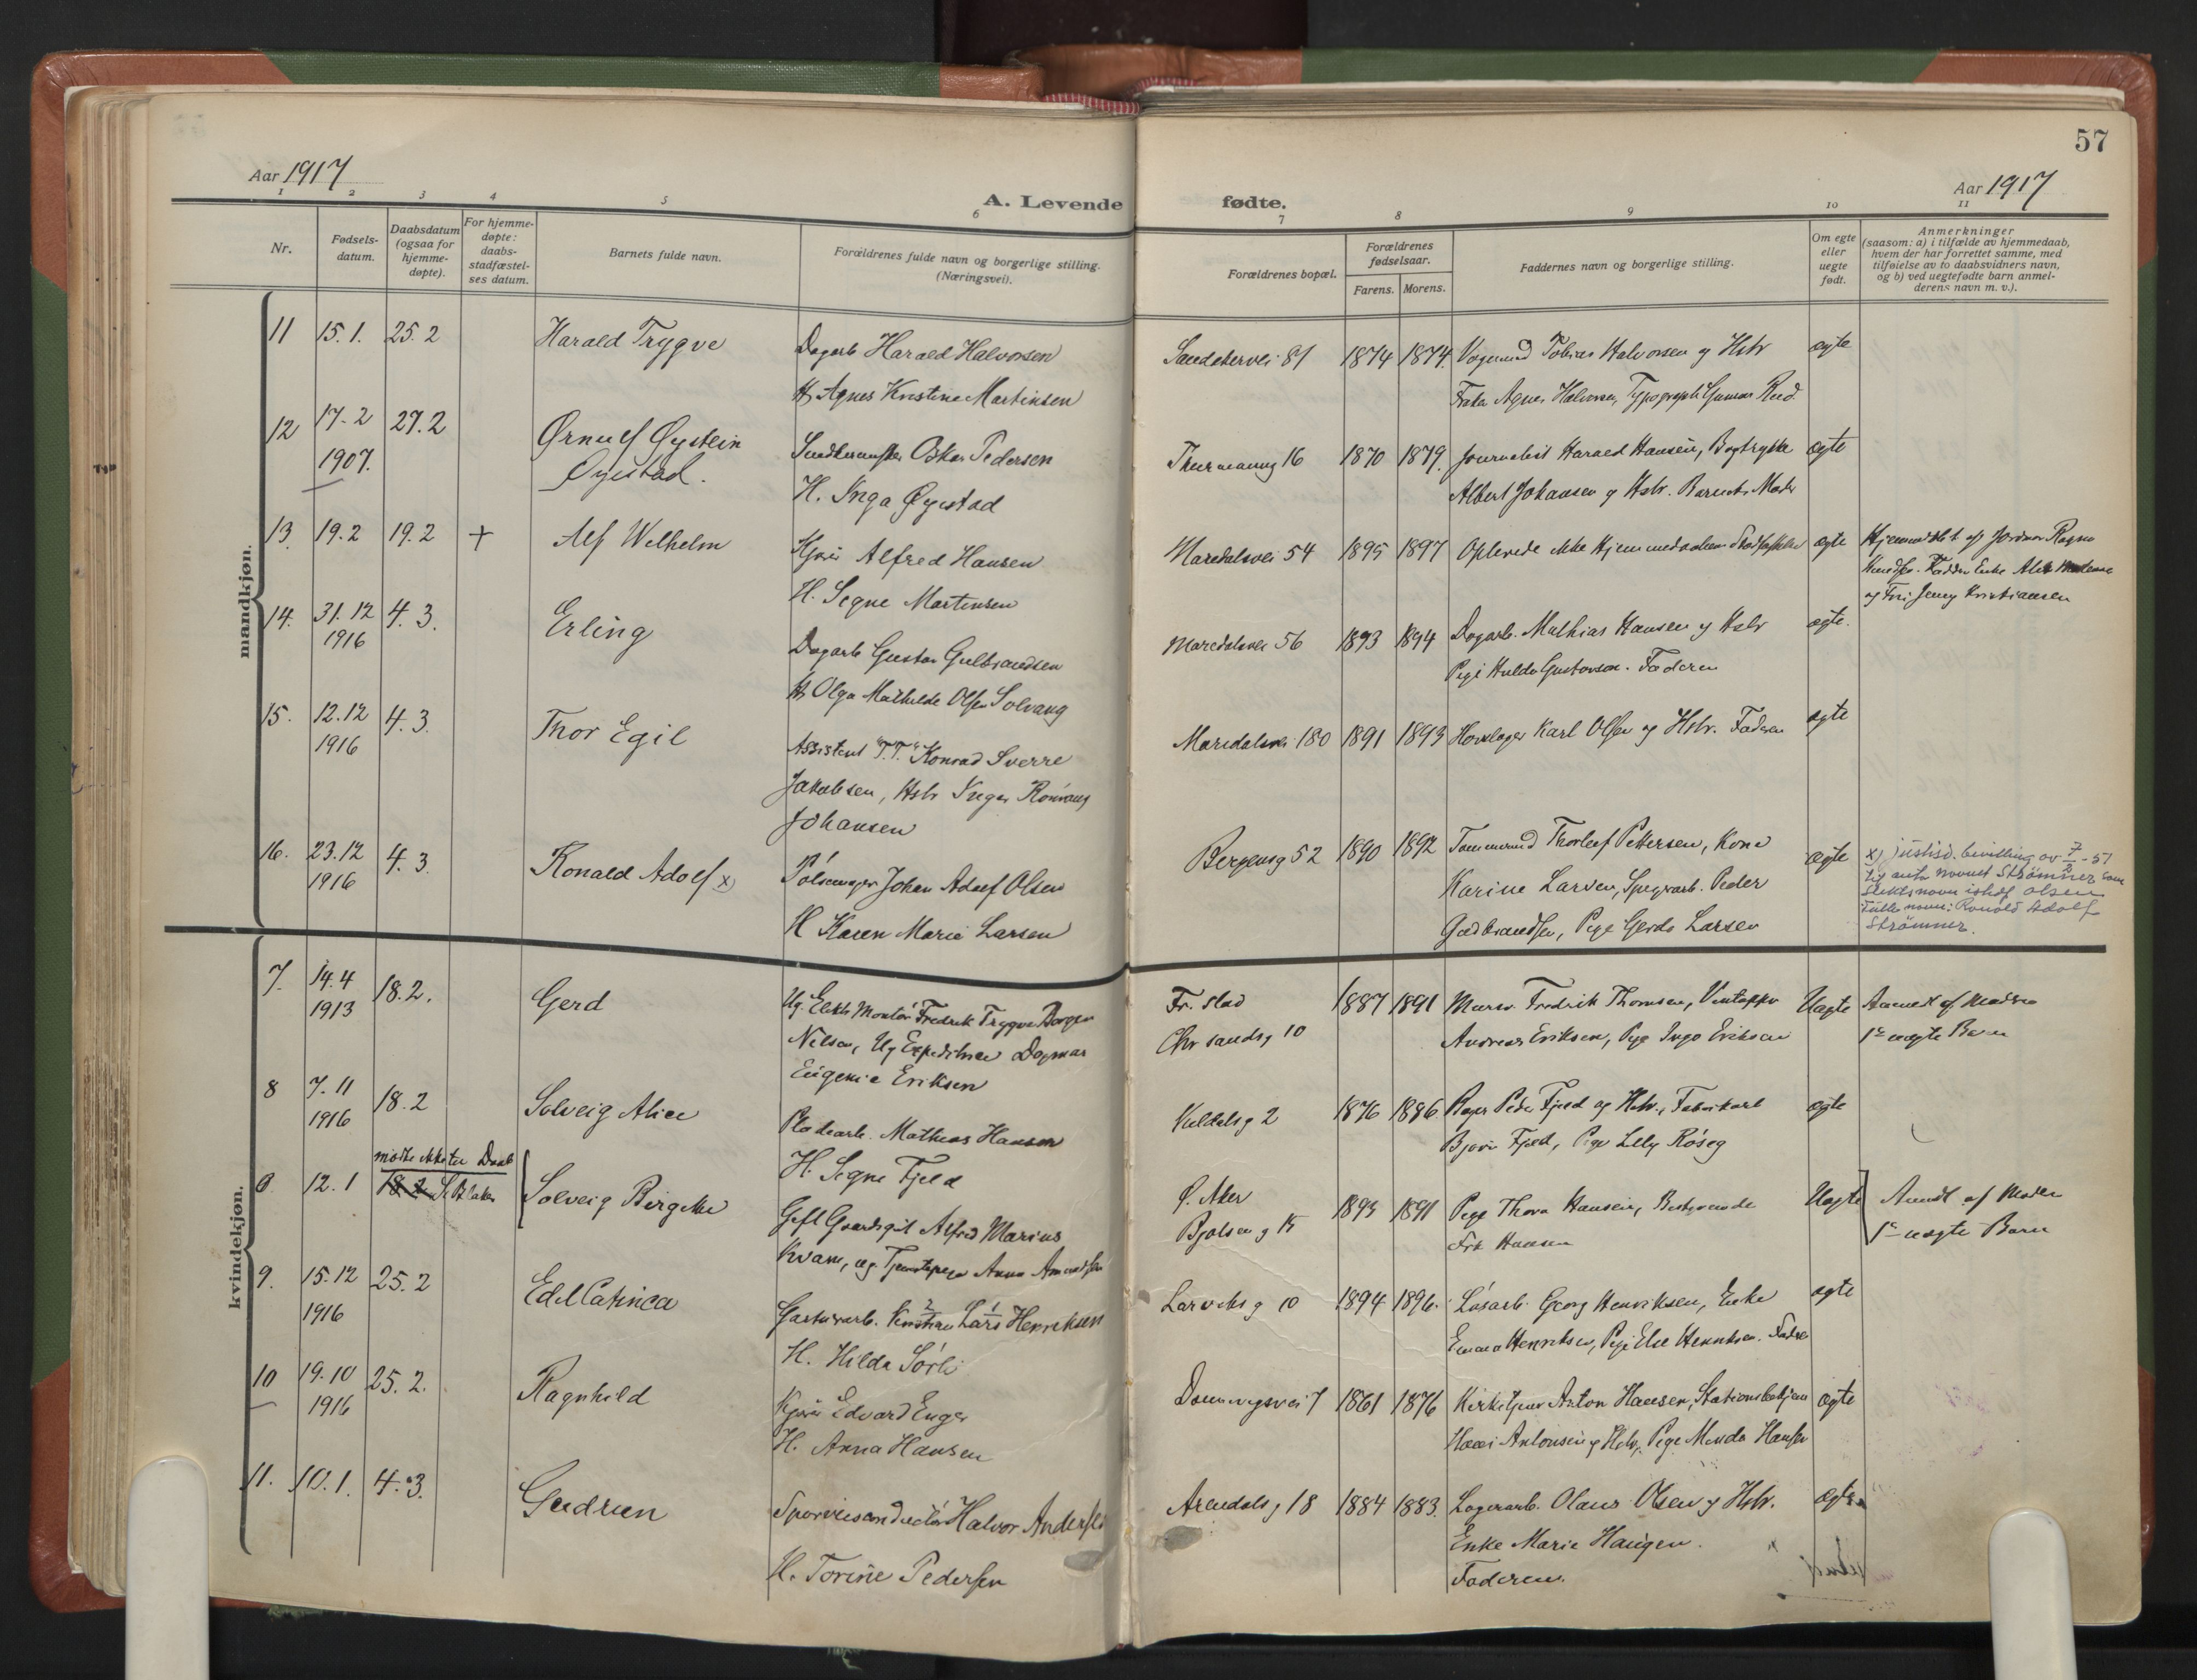 57
Aar 1917
Aar 1917
1 2 3 4 5 6 7 8 9 10 11
A. Levende fødte.
Nr.
Fødsels-
datum.
Daabsdatum
(ogsaa for
hjemme-
døpte).
For hjemme-
døpte:
daabs-
stadfæstel-
ses datum.
Barnets fulde navn.
Forældrenes fulde navn og borgerlige stilling.
(Næringsvei).
Forældrenes bopæl.
Forældrenes
fødselsaar.
Farens. Morens.
Faddernes navn og borgerlige stilling.
Om egte
eller
uegte
født.
Anmerkninger
(saasom: a) i tilfælde av hjemmedaab,
hvem der har forrettet samme, med
tilføielse av to daabsvidners navn,
og b) ved uegtefødte barn anmel-
derens navn m. v.).
mandkjøn.
11 15.1. 25.2 Harald Trygve Dagarb Harald Halvorsen 81 1874 1874. Tobias Halvorsen og Hstr ægte
H. Agnes Kristine Martinsen Agnes Halvorsen, Typograph Gunnar Rud.
12 17-2 27.2 Ørnulf Øystein Oskar Pedersen 16 1870 1879. Journalist Harald Hansen, ægte
1907. Øyestad. H. Inga Øyestad Albert Johansen og Hstr. Barnets Moder
13. 19.2 19.2 + Alf Wilhelm Kjører Alfred Hansen Maridalsvei 54 1895 1897 Oplevede ikke ægte Hjemmedøbt af Jordmor Ragna
H. Signe Martinsen og Jenny Kristiansen
14. 31.12 4.3. Erling Dagarb Gustav Gulbrandsen Maridalsvei 56 1893 1894 Dagarb. Mathias Hansen og Hstr ægte.
1916 H. Olga Mathilde Olsen Solvang Pige Hulda Gustavsen. Faderen
15. 12.12 4.3. Thor Egil Assistent "T.T." Konrad Sverre Maridalsvei 180 1891 1893 Hovslager Karl Olsen og Hstr. Faderen ægte
1916 Jakobsen, Hstr Inga
Johansen
16. 23.12 4.3. Ronald Adolf x) Pølsemager Johan Adolf Olsen Bergensg 52 1890 1892 Thorleif Pettersen, Kone ægte x) justisd. bevilling av 7/2-51
1916 H Karen Marie Larsen Karine Larsen, Peder til anta navnet Strømner som
Gudbrandsen, Pige Gerda Larsen slektsnavn istedf olsen
Fulle navn: Ronald Adolf
Strømner.
kvindekjøn.
7. 14.4 18.2. Gerd Ug. Elektr. Montør Fredrik Trygve Borger Fr. stad 1887 1891 Fredrik Thomsen, Uægte Anmeldt af Moderen
1913 Nilsen, Ug Expeditrice Dagmar Chr sandsg 10 Andreas Eriksen, Pige Inga Eriksen 1ste uægte Barn
Eugenie Eriksen
8 7.11 18.2 Solveig Alice Pladearb. Mathias Hansen 2 1876 1886 Peder Fjeld og Hstr., Fabrikarb ægte
1916 H. Signe Fjeld Fjeld, Pige Lilly
møtte ikke til Daab
8. 12.1 18.2 Solveig Birgitte Gift Alfred Marius Ø. Aker 1895 1891 Pige Thora Hansen, Uægte Anmeldt af Moder
Kvam, ug. Tjenestepige Anna Amundsen Bjølseng 15 Hansen 1ste uægte Barn
9. 15.12 25.2 Edel Catinca Gartnerarb. Kristian Lars Henriksen Larviksg 10 1894 1896. Løsarb. Georg Henriksen, Enke ægte
1916 H. Hilda Sørli Emma Henriksen, Pige Else Henriksen.
10 19.10 25.2. Ragnhild Kjører Edvard Enger 7 1861 1876 Kirketjener Anton Hansen, ægte
1916 H. Anna Hansen Antonsen og Hstr, Pige Minda Hansen
11. 10.1. 4.3. Gudrun Sporveisconductør Halvor Andersen Arendalsg 18 1884 1883. Lagerarb. Olaus Olsen og Hstr. ægte
H. Torine Pedersen Enke Marie Haugen.
Faderen.